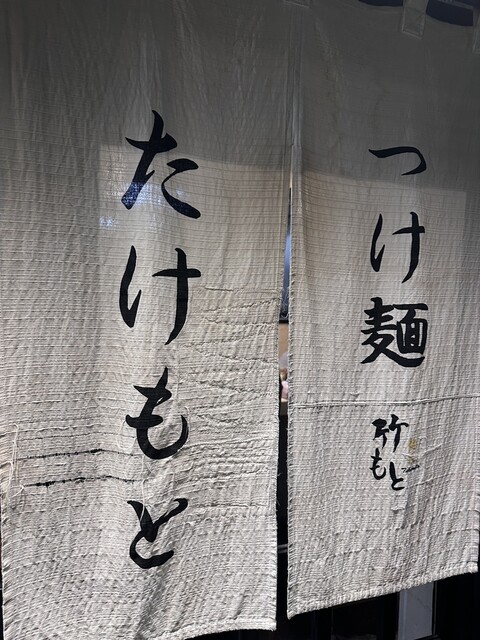 つけ麺
竹もと
たけもと